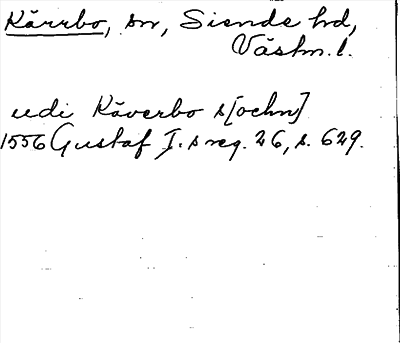 Kärrbo, sn, Siende hd,
Västm. l.
udi Käverbo s[ochn]
1556 Gustaf I. s reg. 26, s. 629.